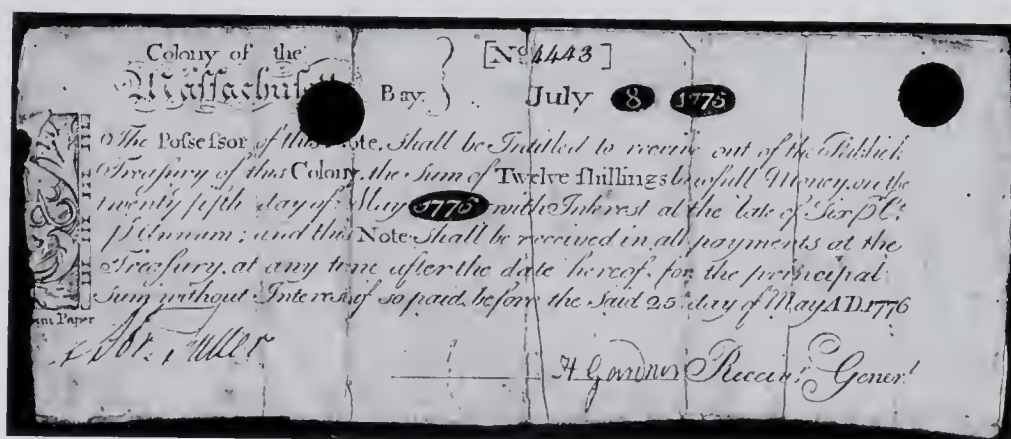 Colony of the [No 4443]
Massachusett Bay. July 8 1775
The Possessor of this Note, shall be Intitled to receive out of the Publick
Treasury of this Colony, the Sum of Twelve shillings Lawfull Money, on the
twenty fifth day of May 1776 with Interest at the Rate of Six p Ct.
p Annum; and this Note shall be received in all payments at the
Treasury, at any time after the date hereof, for the principal
Sum without Interest if so paid, before the said 25 day of May AD. 1776
Paper
Fuller
H Gardner Receivr. Generl.